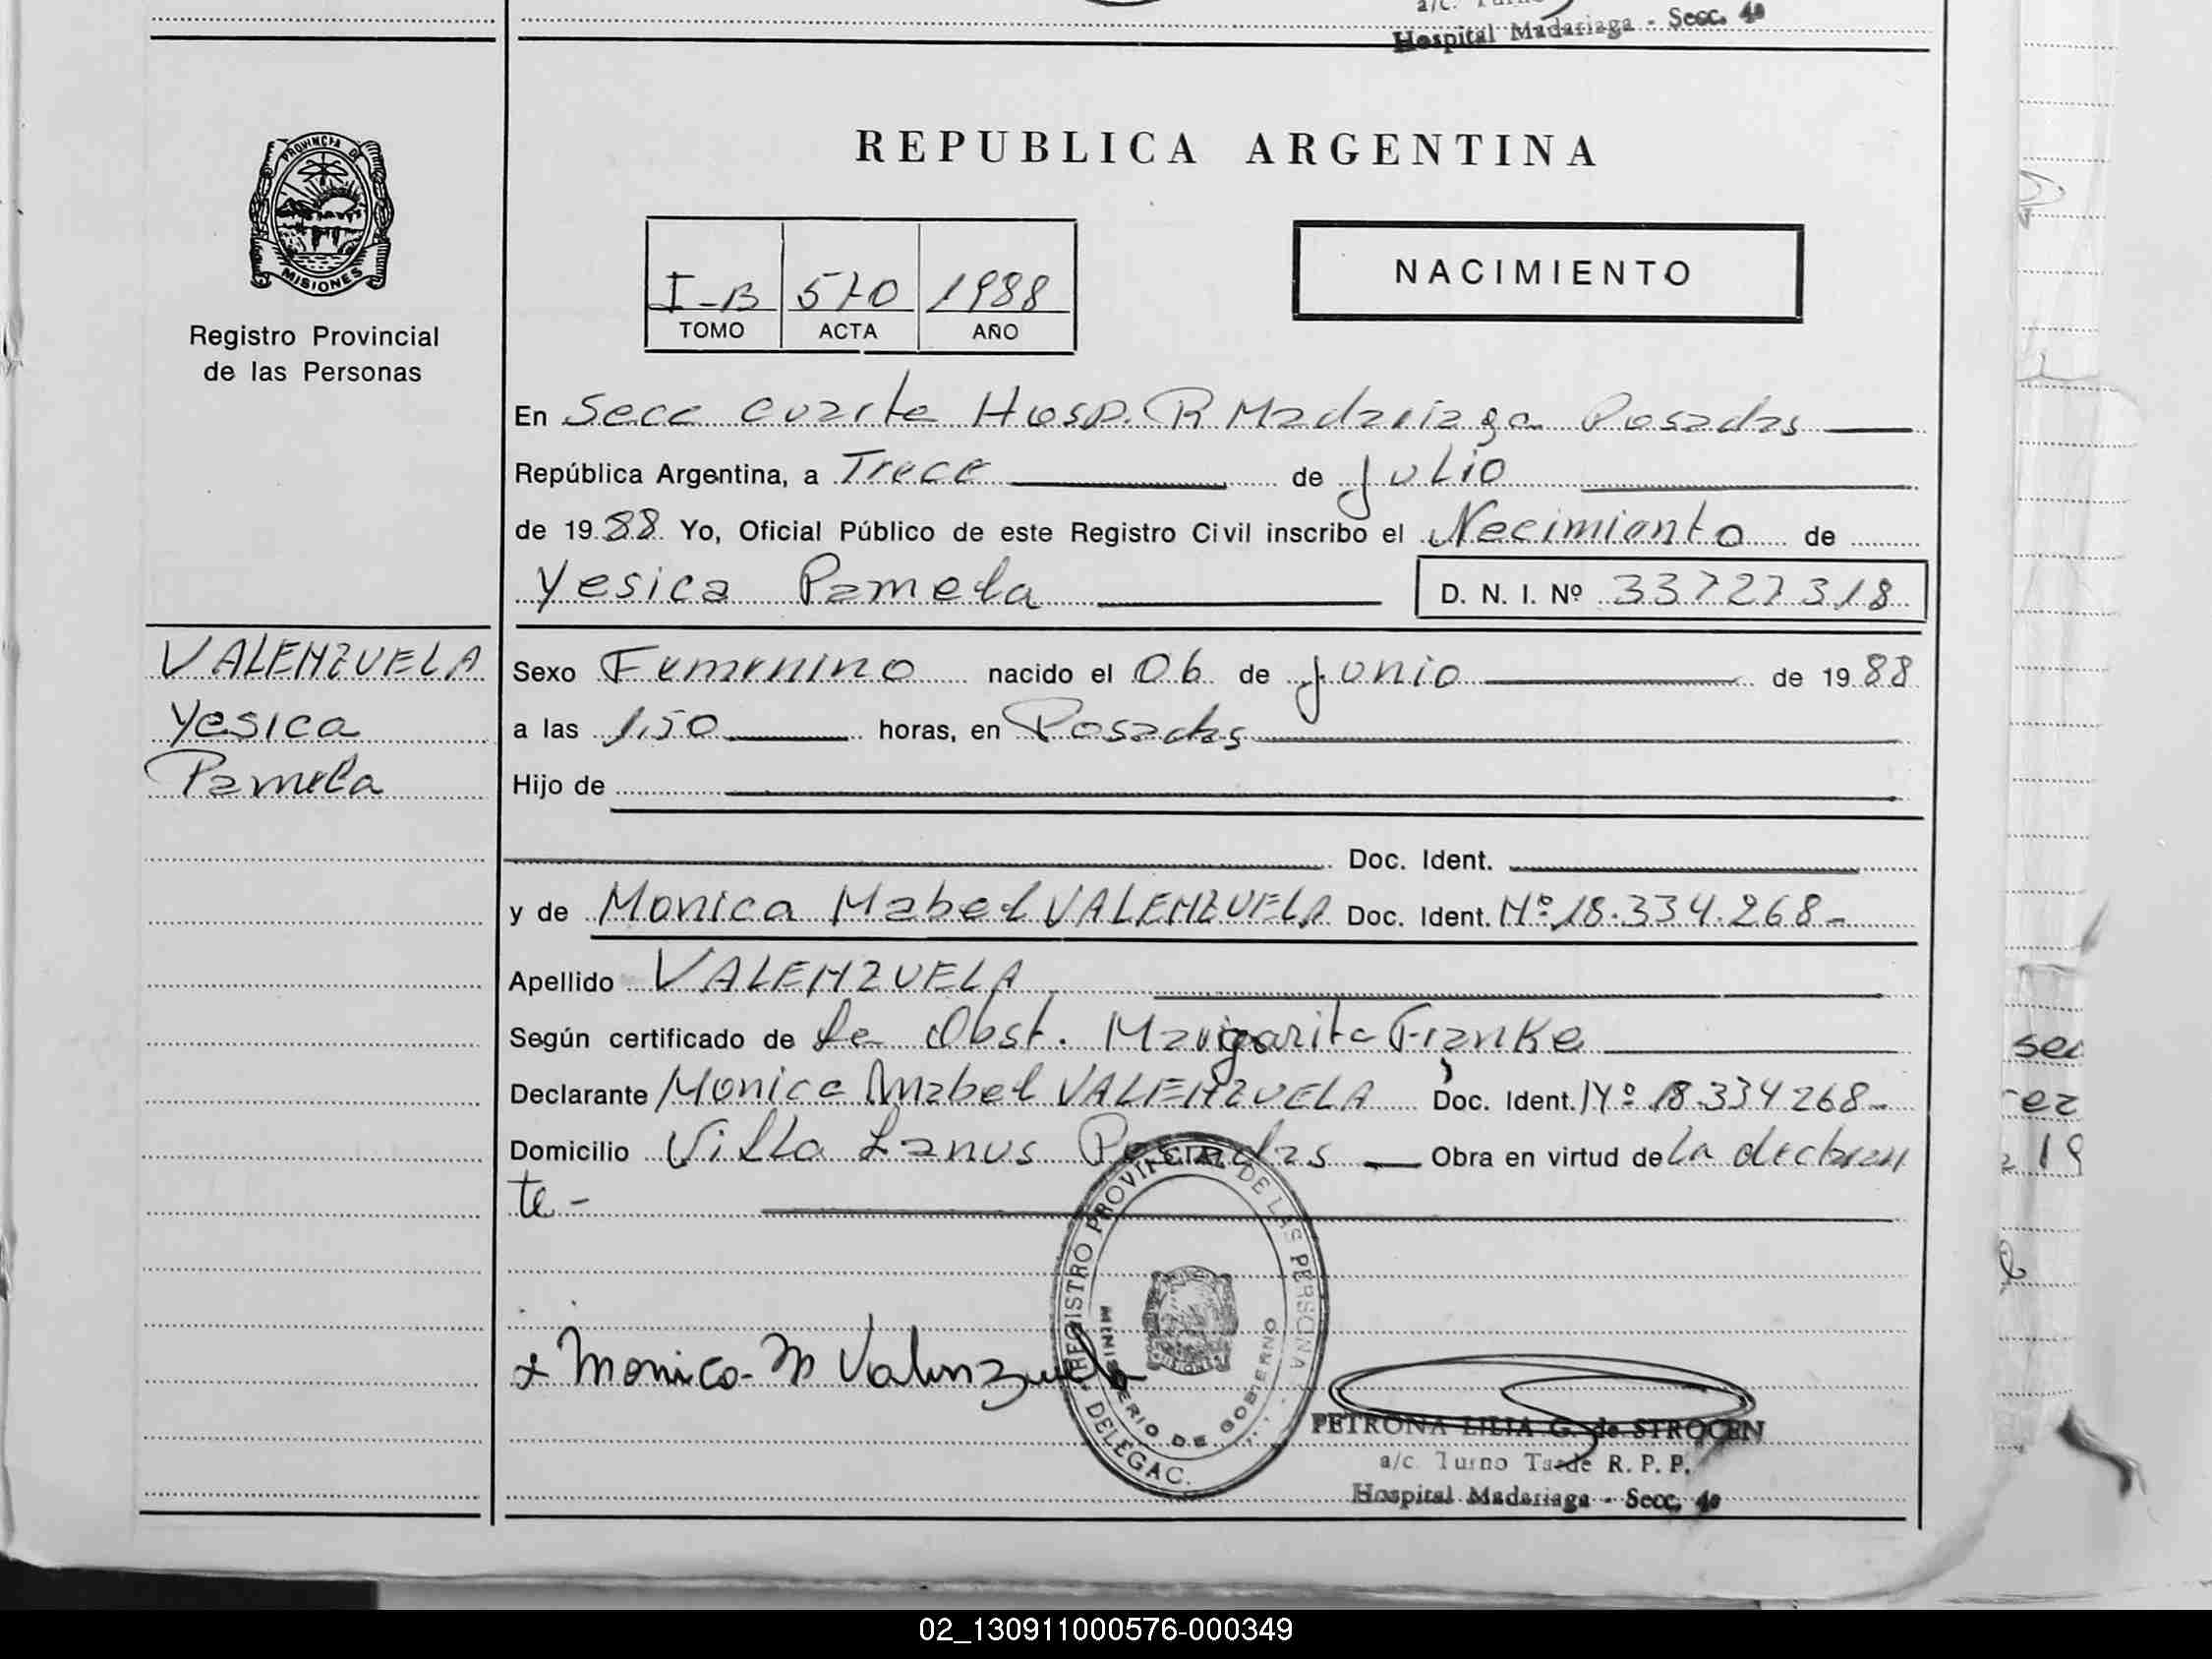 Hospital Madariaga - Secc. 4ª
PROVINCIA DE
MISIONES
Registro Provincial
de las Personas
REPUBLICA ARGENTINA
I-B 570 1988
TOMO ACTA AÑO
NACIMIENTO
En Secc cuarta Hosp. R Madariaga Posadas
República Argentina, a Trece de Julio
de 1988 Yo, Oficial Público de este Registro Civil inscribo el Necimianto de
Yesica Pamela D. N. I. Nº 33727318
VALENZUELA
Yesica
Pamela
Sexo Femenino nacido el 06 de Junio de 1988
a las 1,50 horas, en Posadas
Hijo de
Doc. Ident.
y de Monica Mabel VALENZUELA Doc. Ident. Nº 18.334.268-
Apellido VALENZUELA
Según certificado de La Obst. Margarita Franke
Declarante Monica Mabel VALENZUELA Doc. Ident. Nº 18.334268-
Domicilio Villa Lanus Posadas Obra en virtud de la declaran
te -
REGISTRO PROVINCIAL DE LAS PERSONA
MINISTERIO DE GOBIERNO
DELEGAC.
x Monica M Valenzuela
PETRONA LILIA G. de STROCEN
a/c Turno Tarde R. P. P.
Hospital Madariaga - Secc. 4ª
02_130911000576-000349